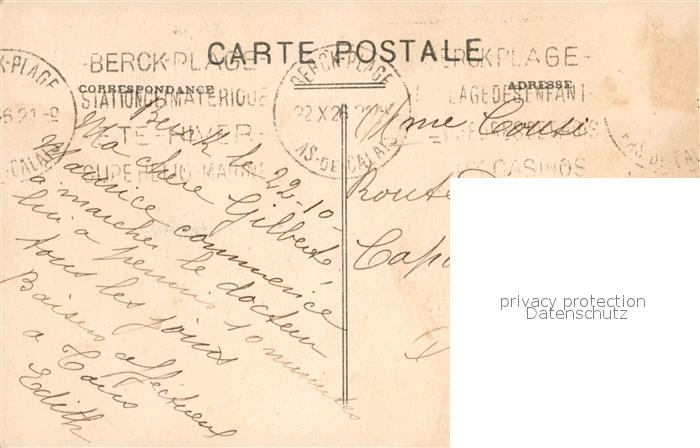 CARTE POSTALE
CORRESPONDANCE
ADRESSE
BERCK-PLAGE
STATION CLIMATERIQUE
ETE-HIVER
BERCK-PLAGE
22 X 26
PAS-DE-CALAIS
BERCK-PLAGE
PLAGE DES ENFANTS
CASINOS
Berck le 22-10-
Ma chère Gilberte,
Maurice commence
a marcher le docteur
lui a permis 10 minutes
tous les jours
Baisers affectueux
a Tous
Edith
Mme
Route
privacy protection
Datenschutz